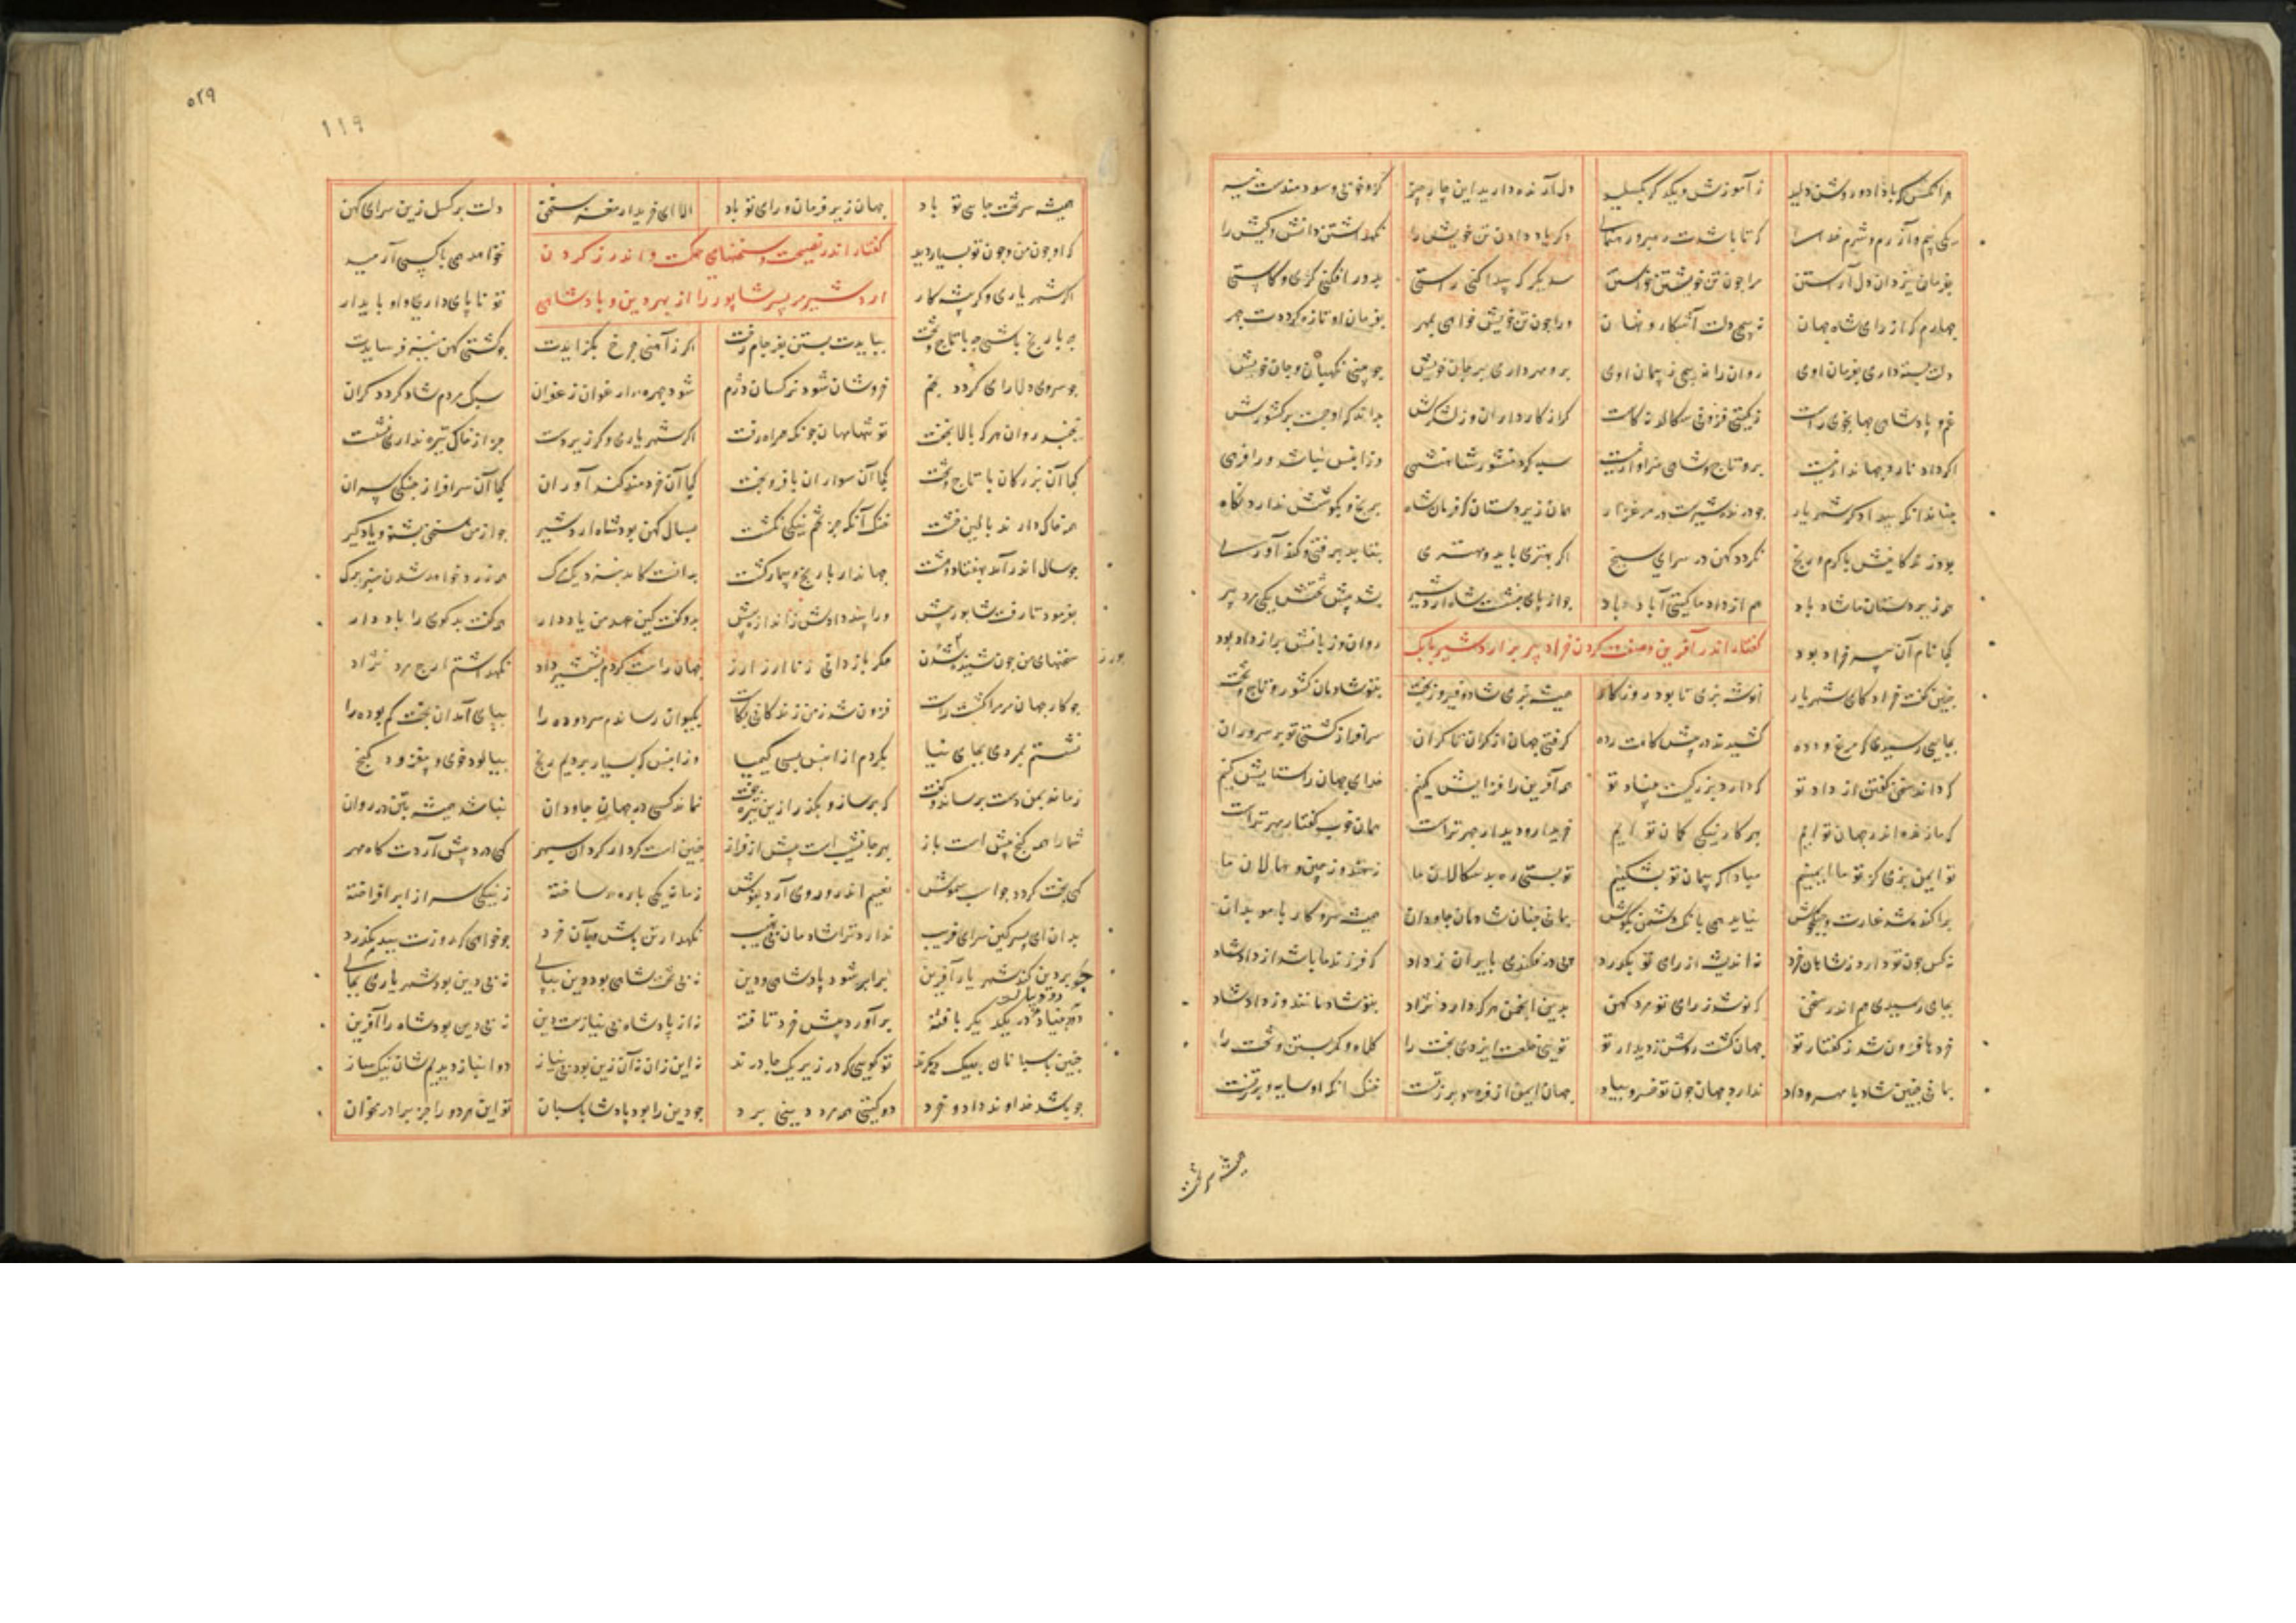 هر انکس که با داد و روشن دلید ز آموزش دیگر مگسلید دل آرنده دارید این چار چیز کزو خوبی و سودمندست نیز
یکی بیم و آزرم و شرم خدا که تا باشدت رهبر و رهنمای دگر داد دادن تن خویش را نگهداشتن دانش و کیش را
بفرمان یزدان دل آراستن مرا چون تن خویشتن خواستن سدیگر که پیدا کنی راستی بدور افکنی کژی و کاستی
چهارم که از رای شاه جهان نپیچی دلت آشکار و نهان ورا چون تن خویش خواهی بمهر بفرمان او تازه گرددت چهر
دلت بسته داری بفرمان اوی روان را نپیچی ز پیمان اوی برو مهر داری بر جان خویش چو بینی نگهبان و جان خویش
غم پادشاهی جهانجوی راست ز گیتی فزونی سکالد نه کاست گر از کارداران وز لشکرش بداند که او جست بر کشورش
اگر داد نارد جهاندار نیست برو تاج شاهی سزاوار نیست سیه کرد منشور شاهنشهی وزان پس نباشد ورا فرهی
چنان دان که بیدادگر شهریار چو درنده شیرست در مرغزار همان زیردستان که فرمان شاه برنج و بکوشش ندارد نگاه
بود زندگانیش با گرم و رنج نگردد کهن در سرای سپنج اگر بهتری باید و مهتری
همه زیردستان ما شاد باد هم از داد ما گیتی آباد باد چو از پای بنشست شاه اردشیر بشد پیش تختش یکی مرد پیر
کجا نام آن پیر خراد بود گفتار اندر آفرین و صفت کردن خراد پیر بر اردشیر بابک روان و زبانش پر از داد بود
چنین گفت خراد کای شهریار انوشه بزی تا بود روزگار همیشه بزی شاد و فیروزبخت بتو شادمان کشور و تاج و تخت
بجایی رسیدی که مرغ و دده کشیدند در پیش کاخت رده گرفتی جهان از کران تا کران سرافراز گشتی تو بر سروران
که داند سخن گفتن از داد تو که دارد بزرگیست بنیاد تو همه آفرین را فزایش کنیم خدای جهان را ستایش کنیم
که ما زنده اندر جهان توایم بهر کار نیکی گمان توایم خریدار و دیدار چهر تراست همان خوب گفتار مهر تراست
تو ایمن بزی کز تو ما ایمنیم مبادا که پیمان تو بشکنیم تو بستی ره بدسکالان ما ز هند و ز چین و همالان ما
پراکنده شد غارت و جنگ و جوش نیاید همی بانک دشمن بگوش بمانی چنان شادمان جاودان همیشه سر و کار با موبدان
نه کس چون تو دارد ز شاهان خرد نه اندیشه از رای تو بگذرد پی در فکندی بایران ز داد که فرزند ما باشد از داد شاد
بجایی رسیدی هم اندر سخن که نو شد ز رای تو مرد کهن بدین انجمن هر که دارد نژاد بتو شادمانند وز داد شاد
خردها فزون شد ز گفتار تو جهان گشت روشن ز دیدار تو تویی خلعت ایزدی بخت را کلاه و کمر بستن و تخت را
بمانی چنین شاد با مهر و داد ندارد جهان چون تو خسرو بیاد جهان ایمن از فره و برز تست خنک انکه او سایه و برز تست
همیشه سر تخت
۵۲۹
۱۱۹
همیشه سر تخت جای تو باد جهان زیر فرمان و رای تو باد الا ای خریدار مغز سخن دلت برگسل زین سرای کهن
که او چون من و چون تو بسیار دید گفتار اندر نصیحت و سخنهای حکمت و اندرز کردن نخواهد همی با کسی آرمید
اگر شهریاری و گر پیشکار اردشیر مر پسر شاپور را از بهر دین و پادشاهی تو ناپایداری و او پایدار
چه با رنج باشی چه با تاج و تخت ببایدت بستن بفرجام رخت اگر ز آهنی چرخ بگزایدت چو گشتی کهن نیز نفرسایدت
چو سروی دلارای گردد بخم خروشان شود نرگسان دژم شود چهره ارغوان زعفران سبک مردم شاد گردد گران
نخسبد روان هر که بالا بخفت تو تنها بمان چونکه همراه رفت اگر شهریاری و گر زیردست جز از خاک تیره نداری نشست
کجا آن بزرگان با تاج و تخت کجا آن سواران با فر و بخت کجا آن خردمند کندآوران کجا آن سرافراز جنگی سران
همه خاک دارند بالین خشت خنک آنکه جز تخم نیکی نکشت بسال کهن بود شاه اردشیر چو از من سخن بشنو و یادگیر
چو سال اندر آمد بهفتاد و هشت جهاندار با رنج و بیمار گشت بدانست کامد بنزدیک مرگ همی زرد خواهد شدن سبز برگ
بفرمود تا رفت شاپور پیش ورا پند داد و اندازه بیش بدو گفت کین عهد من یاد دار همه گفت بدگوی را باد دار
سخنهای من چون شنیدی بورز مگر باز دانی ز ناارز ارز جهان راست کردم بشمشیر داد نگهداشتم ارج مرد نژاد
چو کار جهان مر مرا گشت راست فزون شد زمین زندگانی بکاست بکیوان رساندم سر دوده را بپای آمد آن بخت گم بوده را
نشستم بمردی بجای نیا بکردم از آن پس بسی کیمیا وزان پس که بسیار بردیم رنج بپالود خوی و بپرود گنج
زمانه بمن دست برساند و گفت که برساز و بگذر ازین تیره جفت نماند کسی در جهان جاودان نباشد همیشه بتن در روان
شما را همه گنج پیش است باز بهر جا نشیب است پیش از فراز چنین است کردار گردان سپهر گهی درد پیش آردت گاه مهر
گهی بخت گردد چو اسب شموس بنعیم اندرو روی آرد بنوش زمانی یکی باره ساخته ز نیکی سر از ابر افراخته
بدان ای پسر کین سرای فریب ندارد ترا شادمان بی نهیب نگهدار تن باش و آن خرد چو خواهی که روزت ببد نگذرد
چو بر دین کند شهریار آفرین برابر شود پادشاهی و دین نه بی تخت شاهی بود دین بپای نه بی دین بود شهریاری بجای
دو بنیاد در یکدگر بافته برآورده پیش خرد تافته نه از پادشا بی نیازست دین نه بی دین بود شاه را آفرین
چنین پاسبانان یکدیگرند تو گویی که در زیر یک چادرند نه این زان نه آن زین بود بی نیاز دو انباز دیدیمشان نیک ساز
چو باشد خداوند داد و خرد دو گیتی همی مرد دینی برد چو دین را بود پادشا پاسبان تو این هر دو را جز برادر مخوان